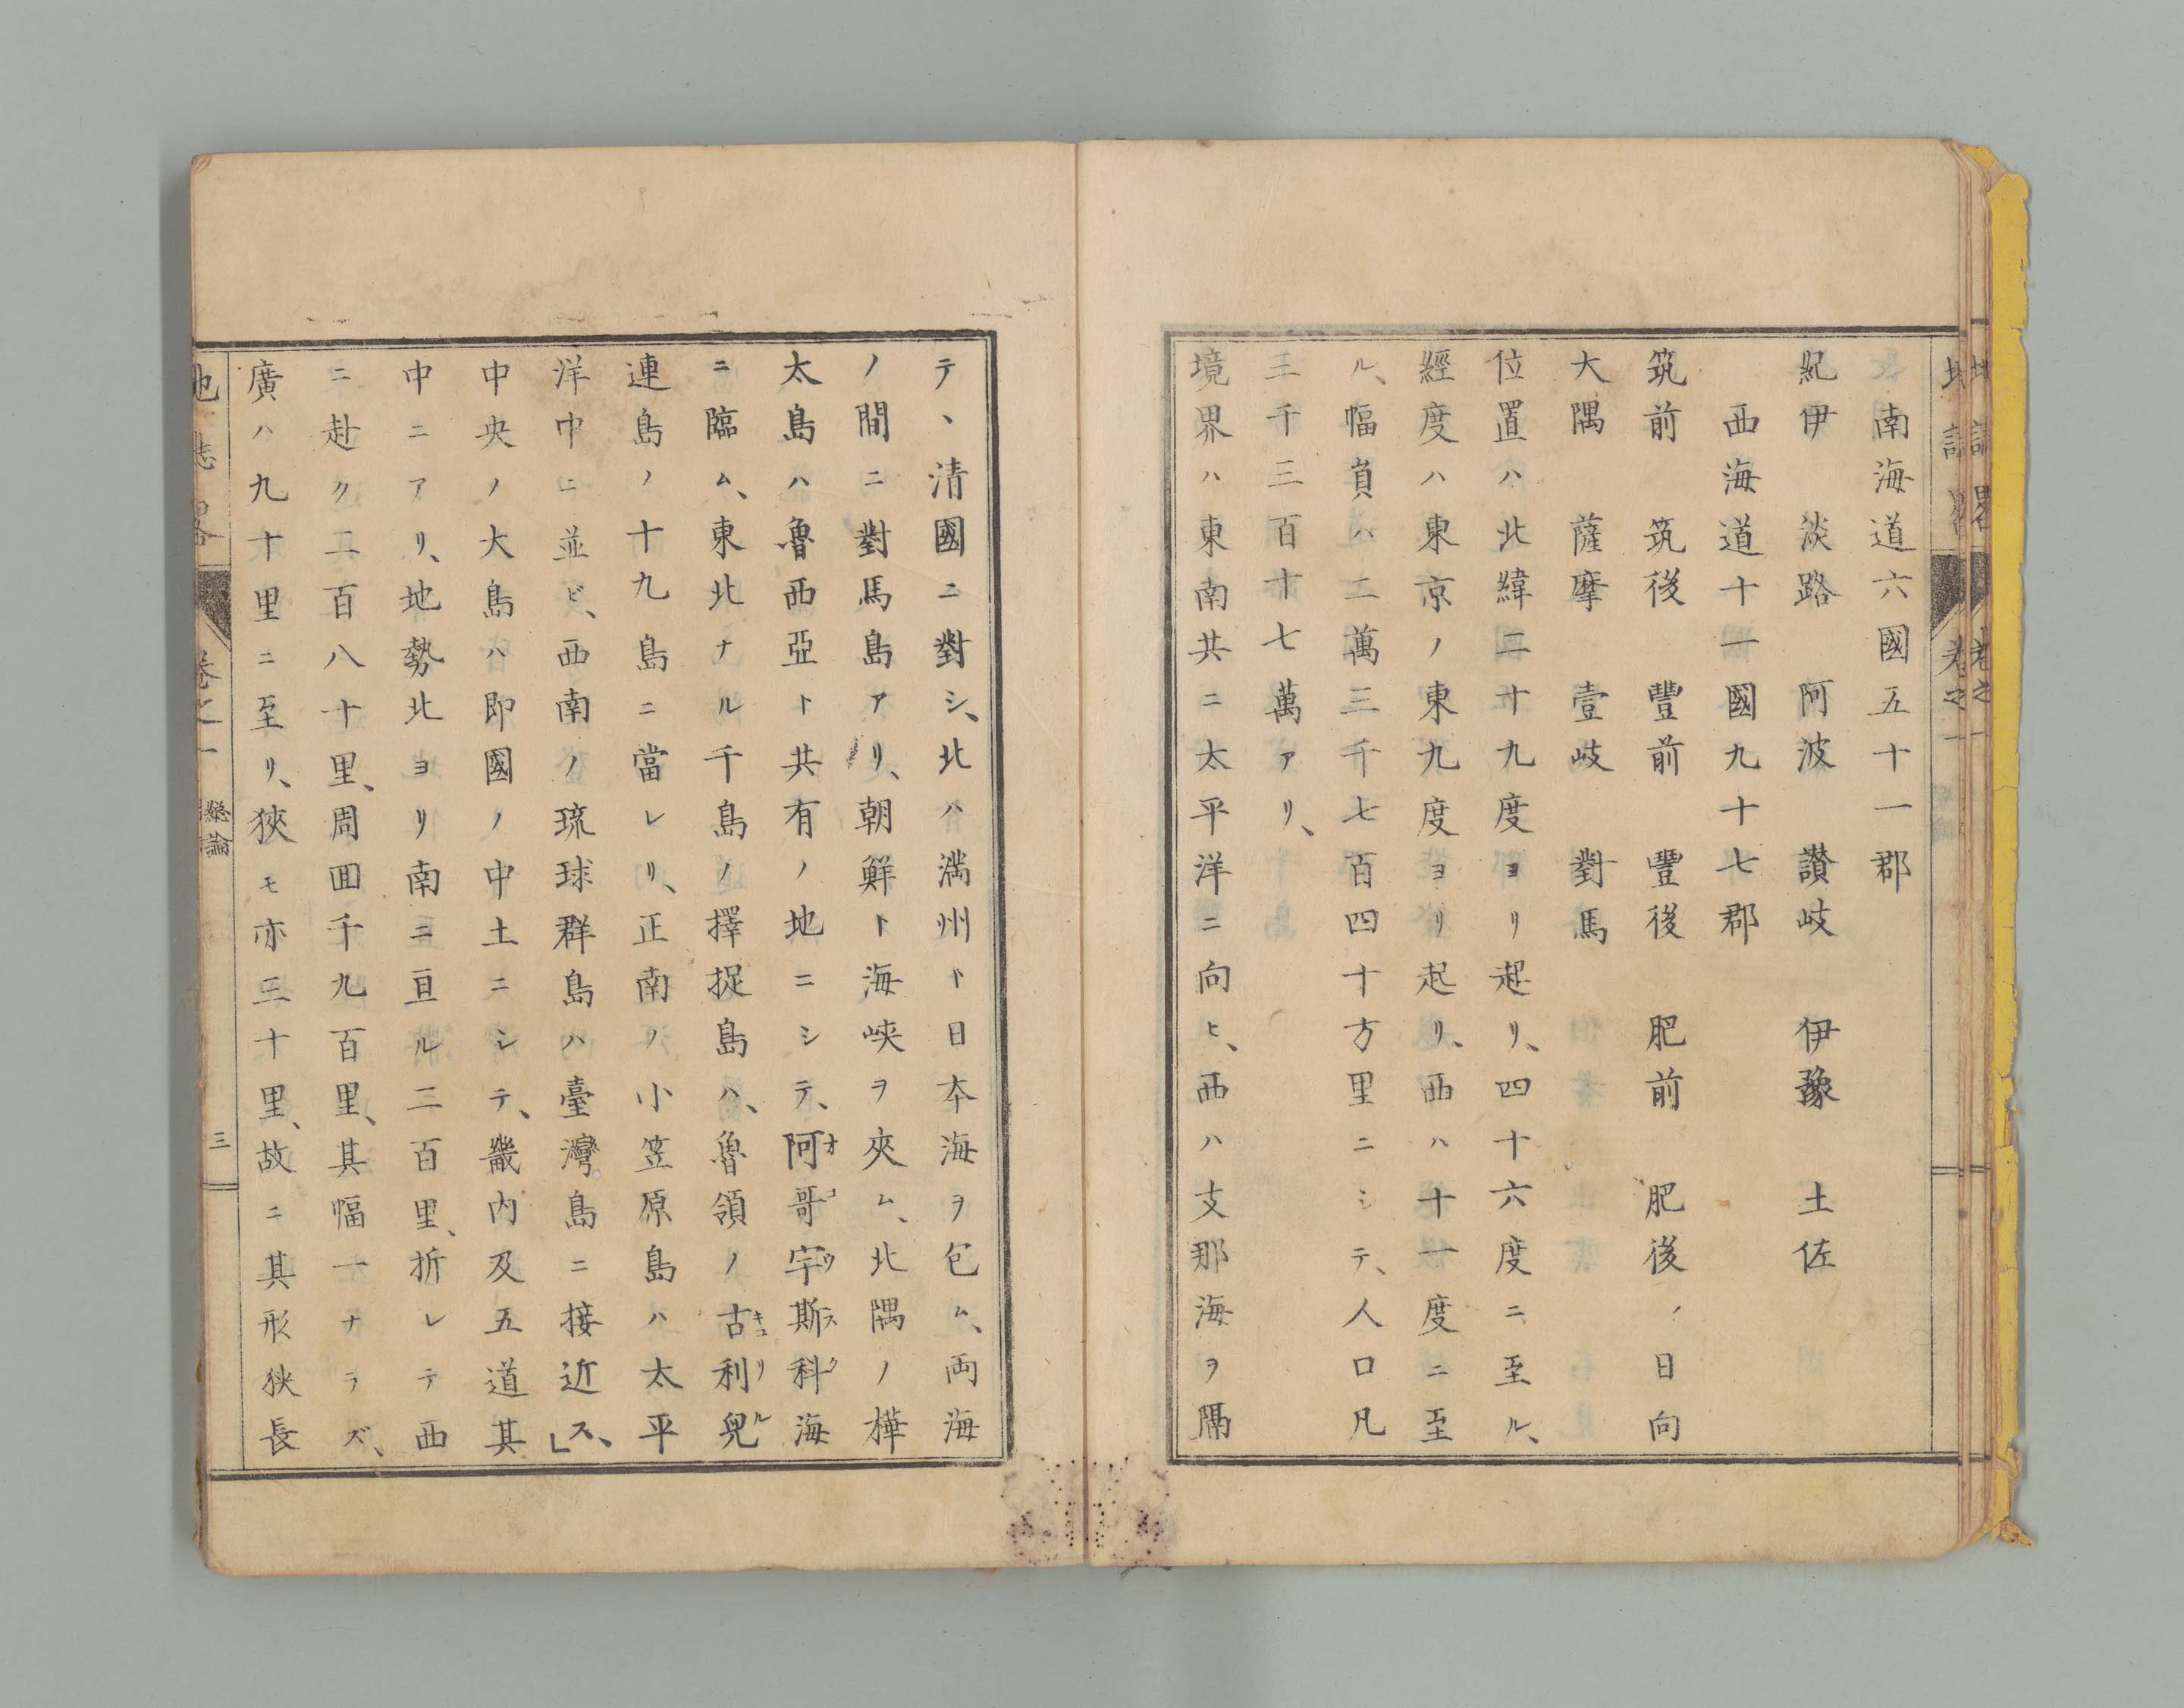 南海道六國五十一郡
紀伊　淡路　阿波　讃岐　伊豫　土佐
西海道十一國九十七郡
筑前　筑後　豐前　豐後　肥前　肥後　日向
大隅　薩摩　壹岐　對馬
位置ハ北緯二十九度ヨリ起リ、四十六度ニ至ル、
經度ハ東京ノ東九度ヨリ起リ、西ハ十一度ニ至
ル、幅員ハ二萬三千七百四十方里ニシテ、人口凡
三千三百十七萬アリ、
境界ハ東南共ニ太平洋ニ向ヒ、西ハ支那海ヲ隔
テ、清國ニ對シ、北ハ満州ト日本海ヲ包ム、両海
ノ間ニ對馬島アリ、朝鮮ト海峡ヲ夾ム、北隅ノ樺
太島ハ魯西亞ト共有ノ地ニシテ、阿哥宇斯科海
オコツスク
ニ臨ム、東北ナル千島ノ擇捉島ハ、魯領ノ古利兒
キュリル
連島ノ十九島ニ當レリ、正南ノ小笠原島ハ太平
洋中ニ並ビ、西南ノ琉球群島ハ臺灣島ニ接近ス、」
中央ノ大島ハ即國ノ中土ニシテ、畿内及五道其
中ニアリ、地勢北ヨリ南ニ亘ル二百里、折レテ西
ニ赴ク二百八十里、周囲千九百里、其幅一ナラズ、
廣ハ九十里ニ至リ、狹モ亦三十里、故ニ其形狹長
地誌畧　卷之一　總論　三